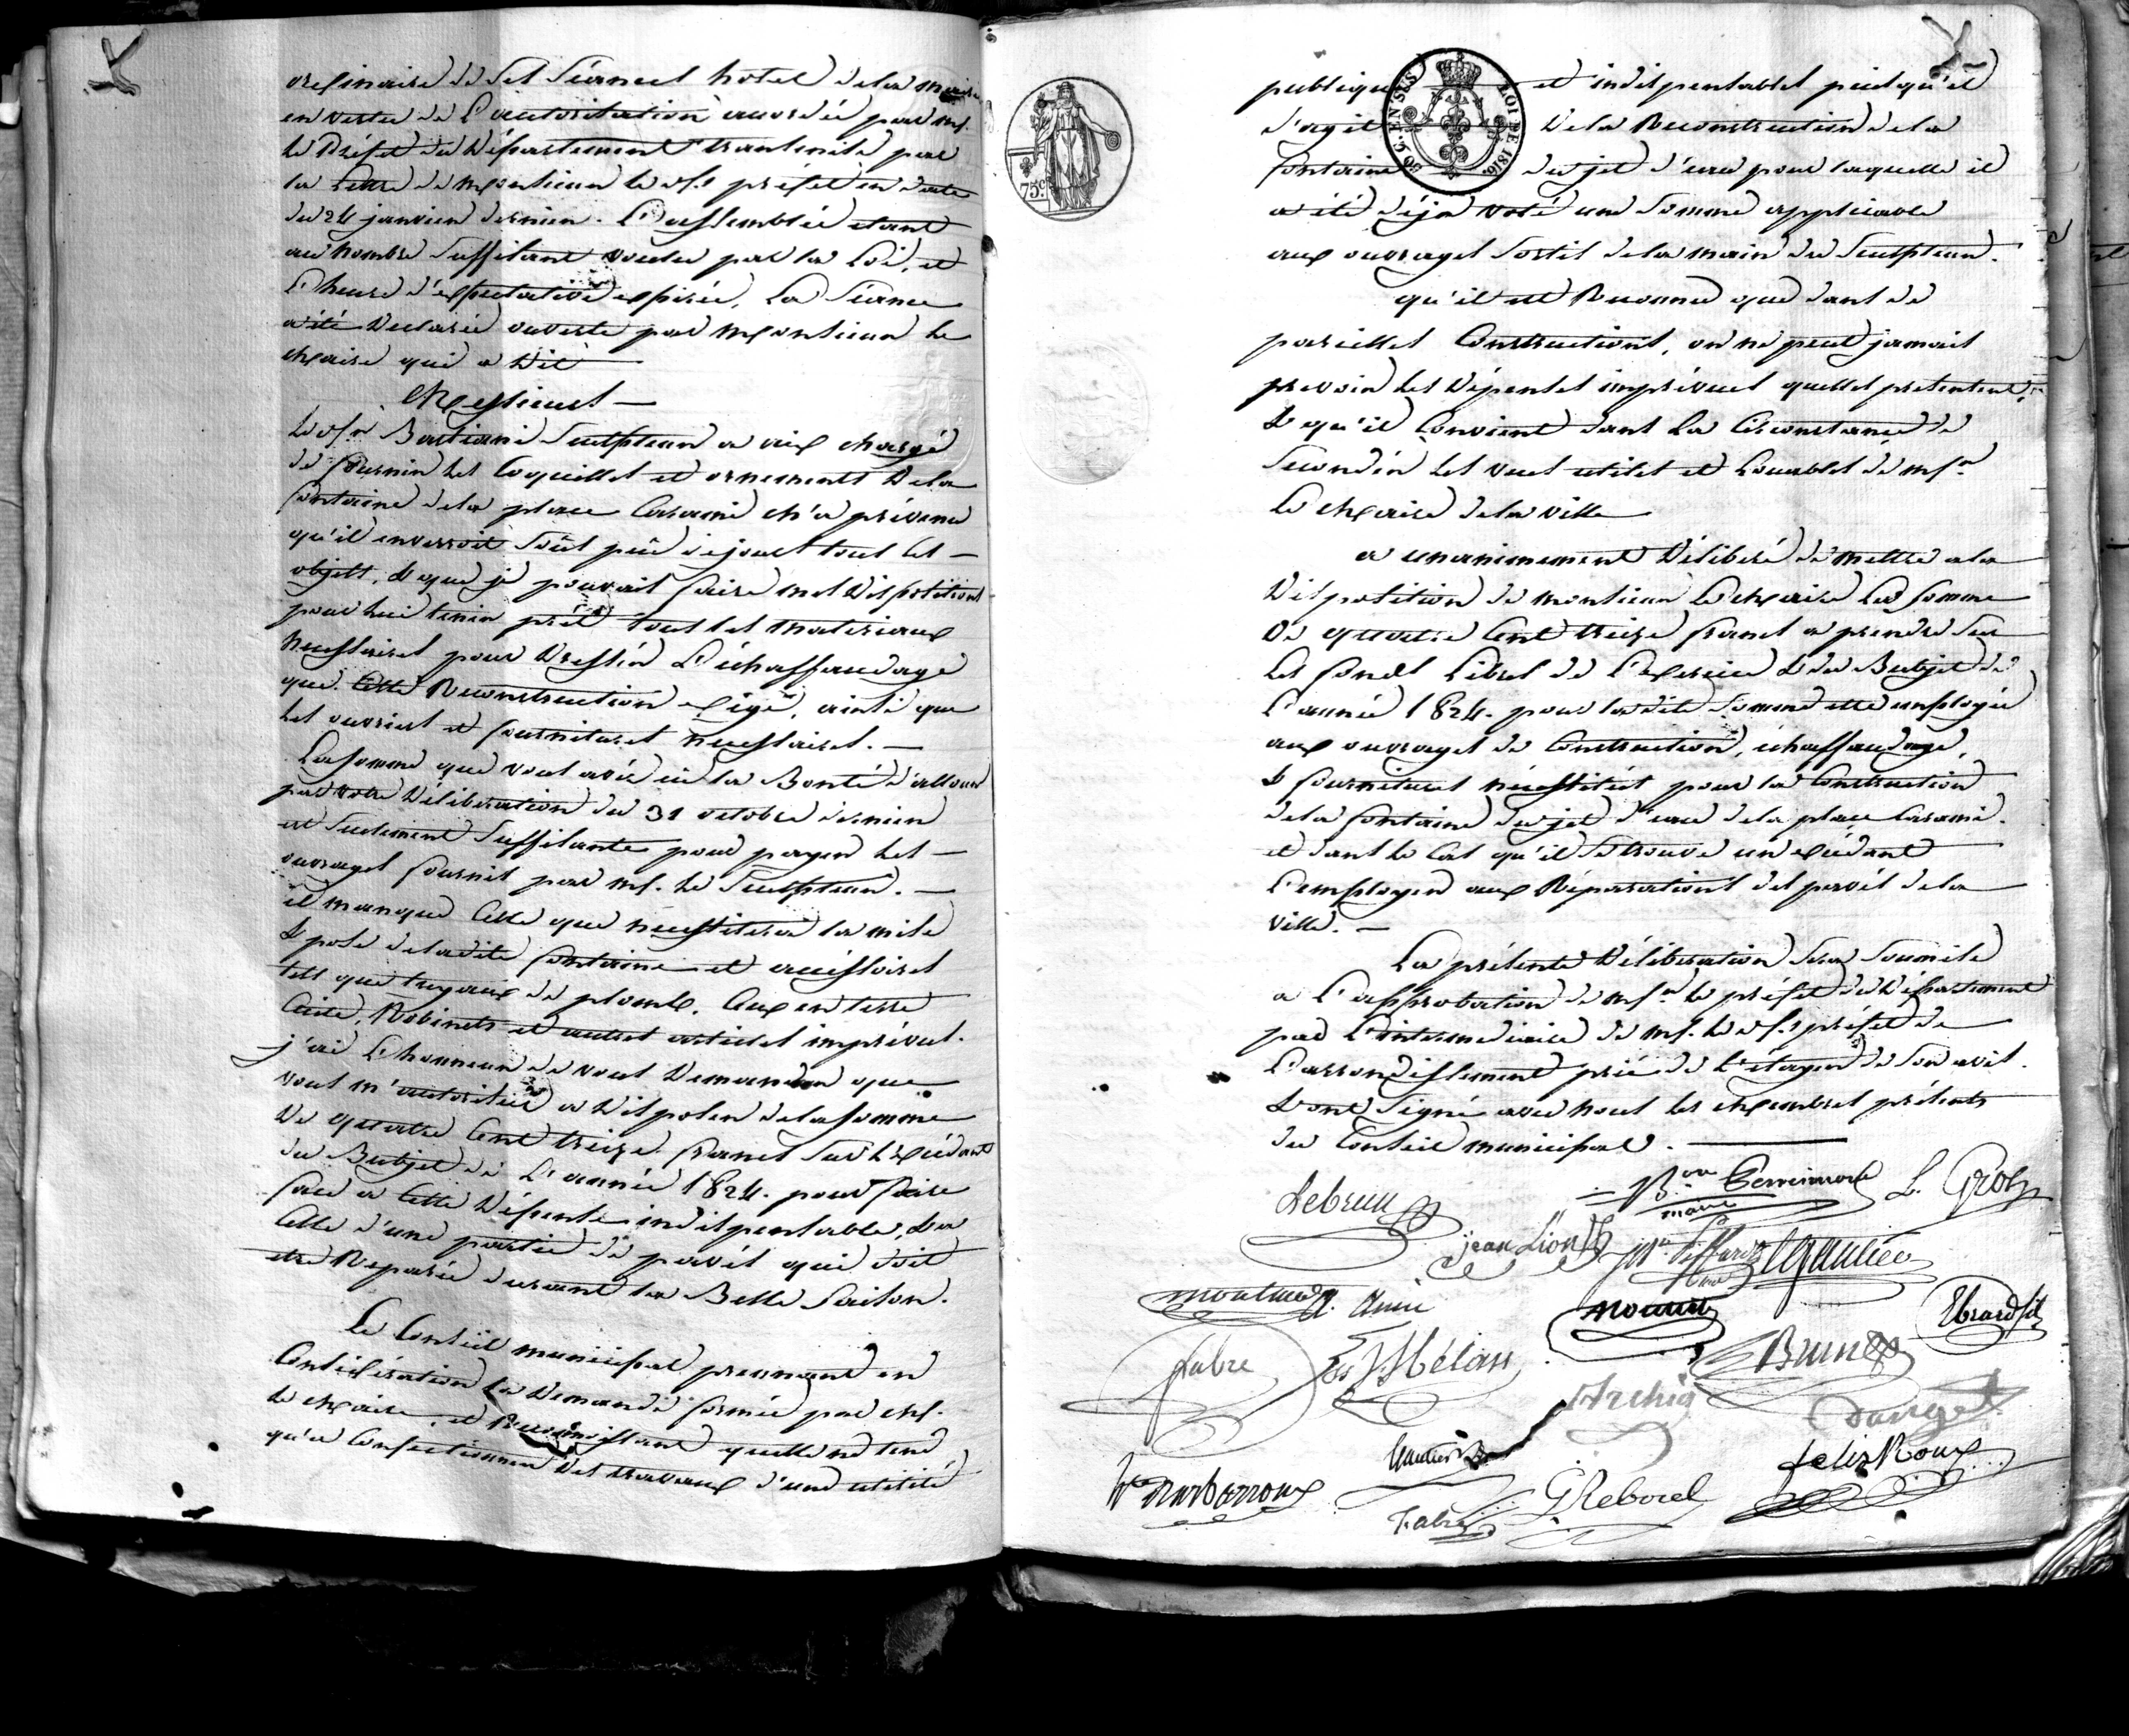 ordinaire de ses séances hotel de la mairie
en vertu de l'autorisation accordée par Mr.
le Préfet du Département transmise par
la lettre de Monsieur le Ss. préfet en date
du 24 janvier dernier. L'assemblée etant
au nombre suffisant voulu par la Loi, et
l'heure d'expectative expirée, La séance
a été declarée ouverte par Monsieur le
Maire qui a dit
Messieurs —
Le Sr. Bastiani Sculpteur a aix chargé
de fournir les Coquilles et ornements de la
fontaine de la place Carami m'a prévenu
qu'il enverroit sous peu de jours tous ces —
objets, & que je pouvais faire mes dispositions
pour lui tenir prêt tous les materiaux
necessaires pour dresser L'échaffaudage
que cette Reconstruction exige, ainsi que
les ouvriers et fournitures necessaires. —
La somme que vous avés eu la Bonté d'allouer
par votre Délibération du 31 octobre dernier
est seulement suffisante pour payer les —
ouvrages fournis par Mr. le Sculpteur. —
il manque celle que necessitera la mise
& pose de ladite fontaine et accessoires
tels que tuyaux de plomb, Ceux en terre
Cuite, Robinets et autres articles imprévus.
j'ai L'honneur de vous Demander que
vous m'autorisiez a disposer de la somme
de quatre Cent treize francs sur l'excédant
du Budjet de L'année 1824. pour faire
face a cette Dépense indispensable, & a
Celle d'une partie de pavés qui doit
etre Réparée durant la Belle Saison.
Le Conseil municipal prennant en
Considération la Demande formée par Mr.
le Maire, et Reconnoissant qu'elle ne tend
qu'a Confectionner des travaux d'une utilité
75c.
50 C. EN SUS LOI DE 1816
publique et indispensables puisqu'il
s'agit de la Reconstruction de la
fontaine du jet d'eau pour laquelle il
a été déja voté une Somme applicable
aux ouvrages sortis de la main du Sculpteur.
qu'il est Reconnu que dans de
pareilles Constructions, on ne peut jamais
prevoir les dépenses imprévues quelles presentent,
& qu'il Convient dans la Circonstance de
seconder les vues utiles et Louables de Mr.
Le Maire de la ville
a unanimement Délibéré de mettre a la
Disposition de Monsieur Le Maire La somme
De quatre Cent treize francs a prendre sur
Les fonds Libres de L'exercice & du Budjet de
L'année 1824. pour ladite somme etre employée
aux ouvrages de Construction, échaffaudage,
& fournitures nécessités pour la Construction
de la fontaine du jet d'eau de la place Carami.
et dans le Cas qu'il se trouve un excédant
L'employer aux Réparations des pavés de la
ville. —
La présente Délibération sera soumise
a L'approbation de Mr. le préfet du Département
par L'intermediaire de Mr. le Ss. préfet de
L'arrondissement prié de L'étayer de son avis.
& ont signé avec nous les Membres présents
du Conseil municipal.
Lebrun
maire
L. Gros
jean Lion
Fabre
Brun
Fabre
G Reboul
felix Roux